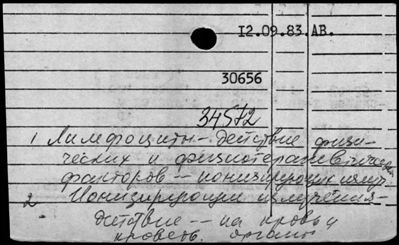 12.09.83.АВ.
30656
34572
1 Лимфоциты - действие физи-
ческих и физиотерапевтических
факторов -- ионизирующих излуч.
2 Ионизирующии излучения -
действие -- на кровь и
кроветв. органы